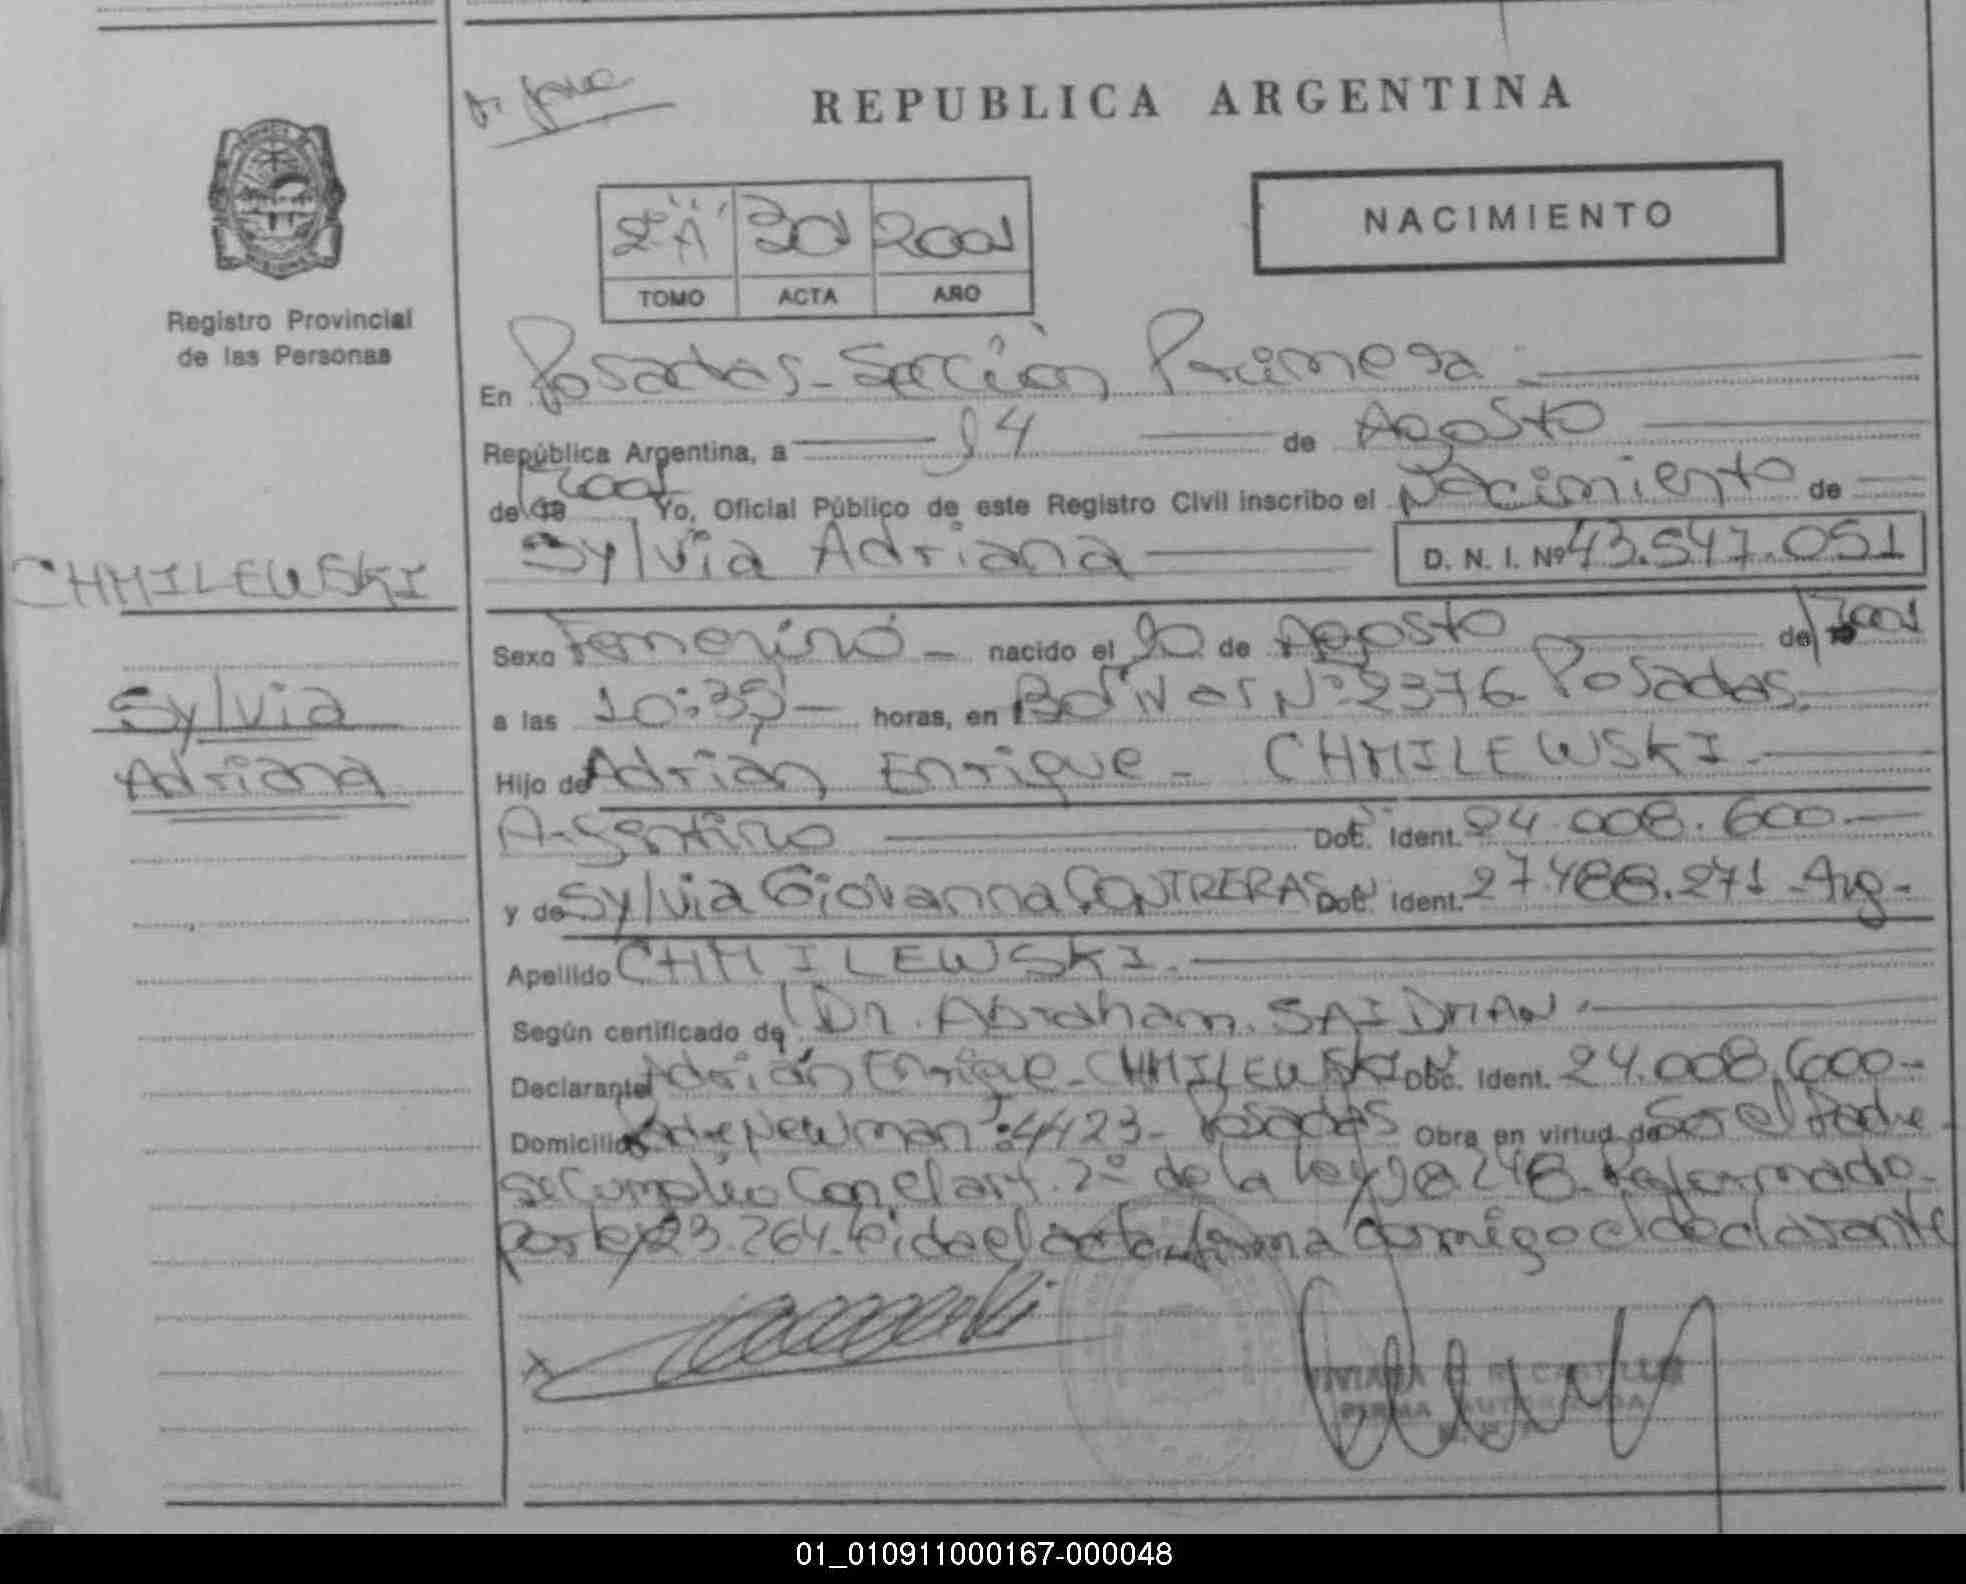 REPUBLICA ARGENTINA
Registro Provincial
de las Personas
2º "A" 301 2001
TOMO ACTA AÑO
NACIMIENTO
En Posadas - Sección Primera
República Argentina, a 14 de Agosto
de 2001 Yo, Oficial Público de este Registro Civil inscribo el Nacimiento de
Sylvia Adriana D. N. I. Nº 43.547.051
CHMILEWSKI
Sylvia
Adriana
Sexo Femenino - nacido el 10 de Agosto de 2001
a las 10:35 - horas, en Bolívar Nº 2376 Posadas.
Hijo de Adrián Enrique - CHMILEWSKI -
Argentino Doc. Ident. 24.008.600 -
y de Sylvia Giovanna CONTRERAS Doc. Ident. 27.488.271 - Arg -
Apellido CHMILEWSKI -
Según certificado de Dr. Abraham SAIDMAN -
Declarante Adrián Enrique - CHMILEWSKI Doc. Ident. 24.008.600 -
Domicilio Padre Newman 4423 - Posadas Obra en virtud de Ser el Padre
se Cumplió Con el art. 2º de la Ley 18.248 - Reformado
por Ley 23.264. leida el acta, firma conmigo el declarante
VIVIANA R. CASTILLO
FIRMA AUTORIZADA
01_010911000167-000048